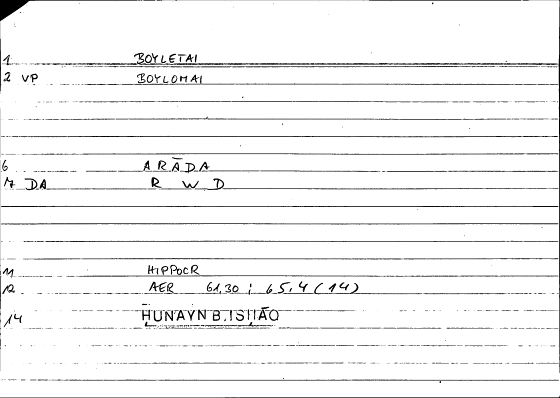 1 BOYLETAI
2 VP BOYLOMAI
6 ARĀDA
7 DA R W D
11 HIPPOCR
12 AER 61,30 ; 65,4 (14)
14 ḤUNAYN B. ISḤĀQ